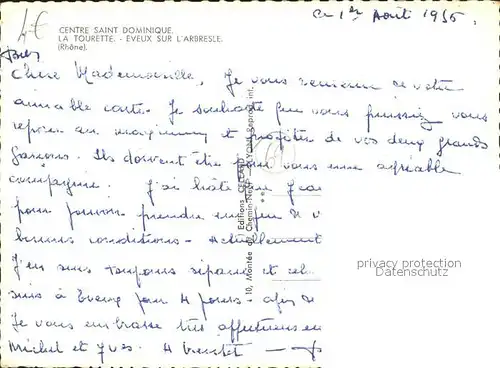 4€
Ce 1er Août 1965.
CENTRE SAINT DOMINIQUE.
LA TOURETTE. - EVEUX SUR L'ARBRESLE.
(Rhône).
Chère Mademoiselle, Je vous remercie de votre
aimable carte. Je souhaite que vous puissiez vous
reposer au maximum et profiter de vos deux grands
garçons. Ils doivent être pour vous une agréable
compagnie. J'ai hâte que
pour pouvoir prendre un peu de v
bonnes conditions - Actuellement
J'en suis toujours séparée et
suis à pour 4 jours -
Je vous embrasse très affectueusem
Michel et Yves. -
Editions CELLARD
10, Montée du Chemin-Neuf - LYON
Reproduct. int.
privacy protection
Datenschutz